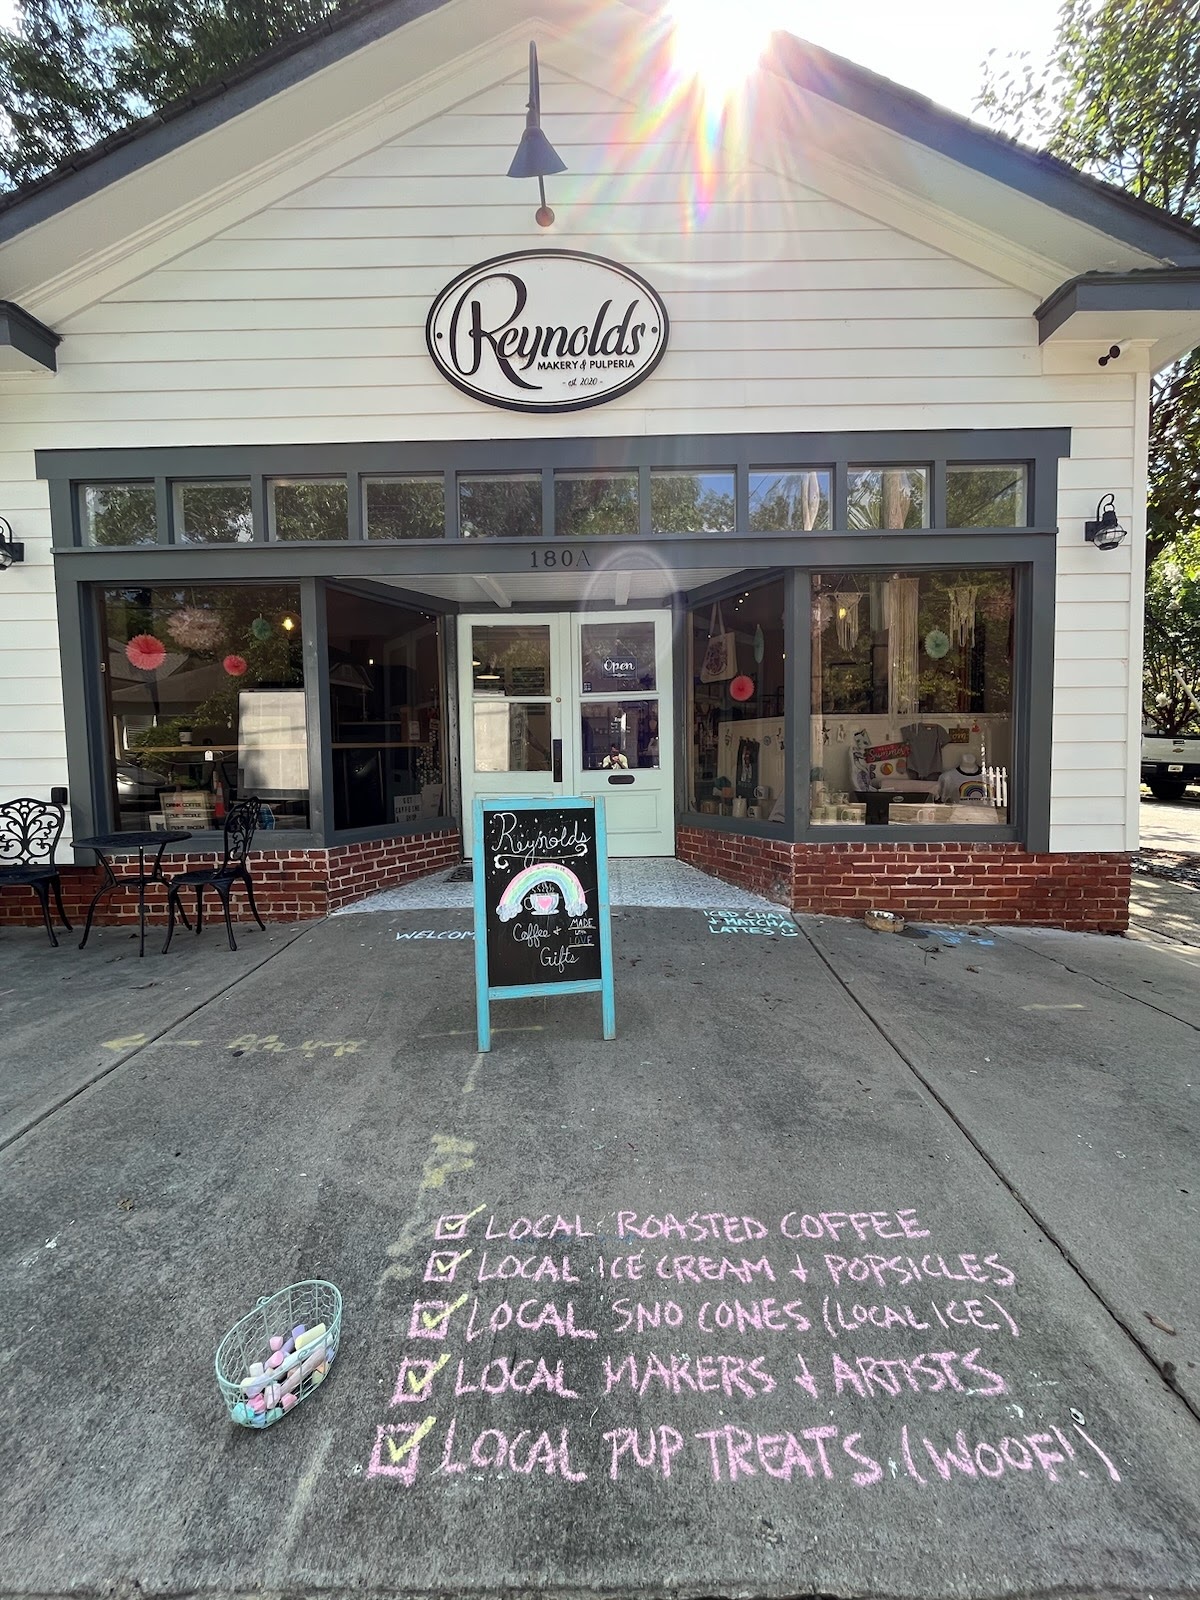 Reynolds
MAKERY & PULPERIA
- est. 2020 -
180A
Open
Reynolds
Coffee +
MADE
with
LOVE
Gifts
WELCOM
ICED CHAI
+ MATCHA
LATTES
LOCAL ROASTED COFFEE
LOCAL ICE CREAM + POPSICLES
LOCAL SNO CONES (LOCAL ICE)
LOCAL MAKERS + ARTISTS
LOCAL PUP TREATS (WOOF!)